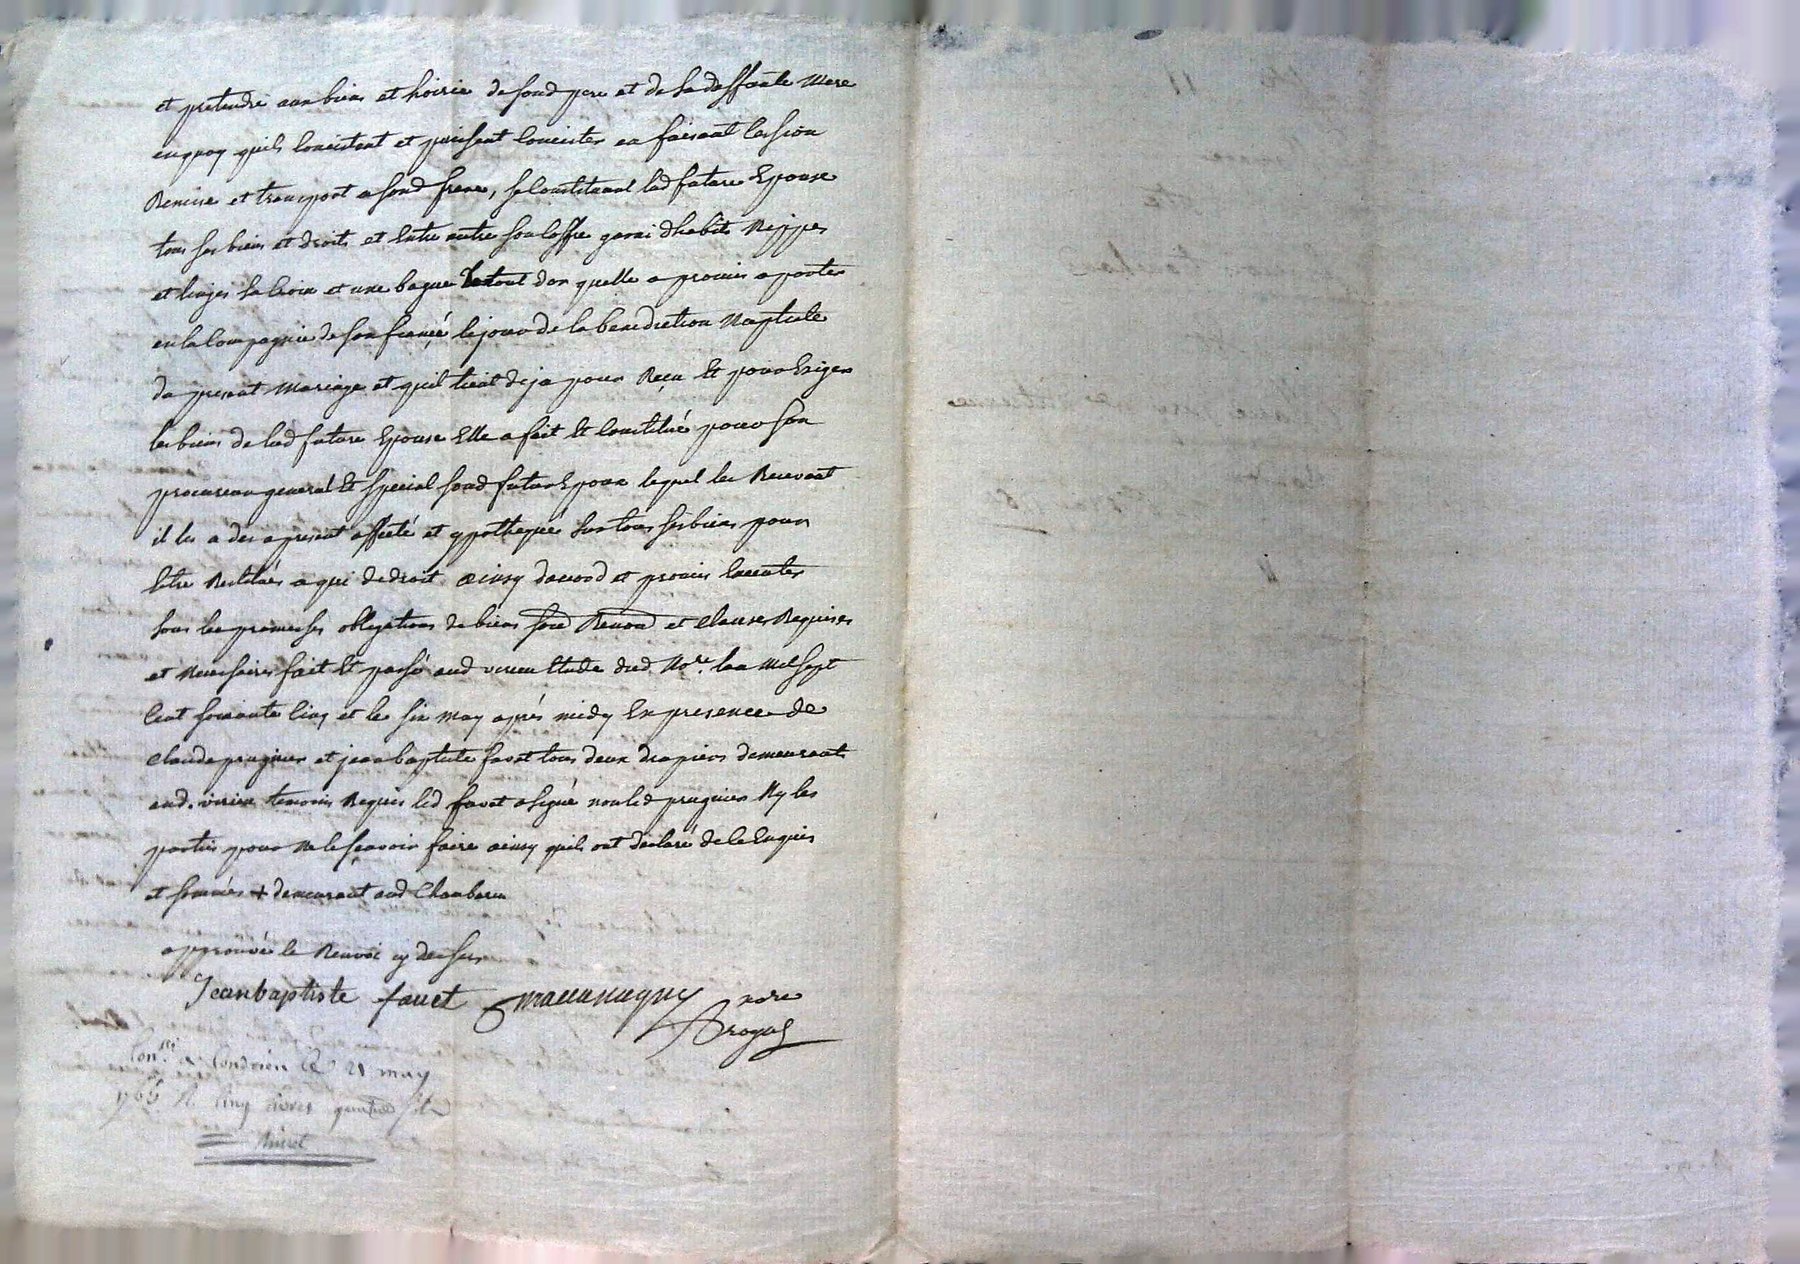 et pretendre aux biens et hoirie de soud pere et de sa deffunte Mere
enquoy quils consistent et puissent consister en faisant cession
Remise et transport a soud frere, se constituant lad future Epouse
tous ses biens et droits et Entre autre son coffre garni dhabits Nippes
et linges sa Croix et une bague le tout dor quelle a promis aporter
en la Compagnie de son fiancé le jour de la benediction Nuptiale
du present Mariage et quil tient deja pour Reçu Et pour Exiger
les biens de lad future Epouse Elle a fait Et Constitué pour son
procureur general Et special soud futur Epoux lequel les Recevant
il les a des apresent affecté et ypothequé sur tous ses biens pour
Estre Restitués a qui de droit ainsy dacord et promis Executer
sous les promesses obligations de biens soud Renond et clauses Requises
et Necessaires fait Et passé aud virieu Etude dud Nore. lan Mil sept
Cent soixante Cinq et le six may aprés midy En presence de
Claude prugnier et jean baptiste favet tous deux drapiers demeurant
aud. virieu temoins Requis led favet a signé non led prugnier Ny les
parties pour Ne le sçavoir faire ainsy quils ont declaré de ce Enquis
et sommés + demeurant aud Chambaru
approuvé le Renvoi cy dessus
Jeanbaptiste fauet nore
Con.lé a Condrieu le 21 may
1765 R Cinq livres